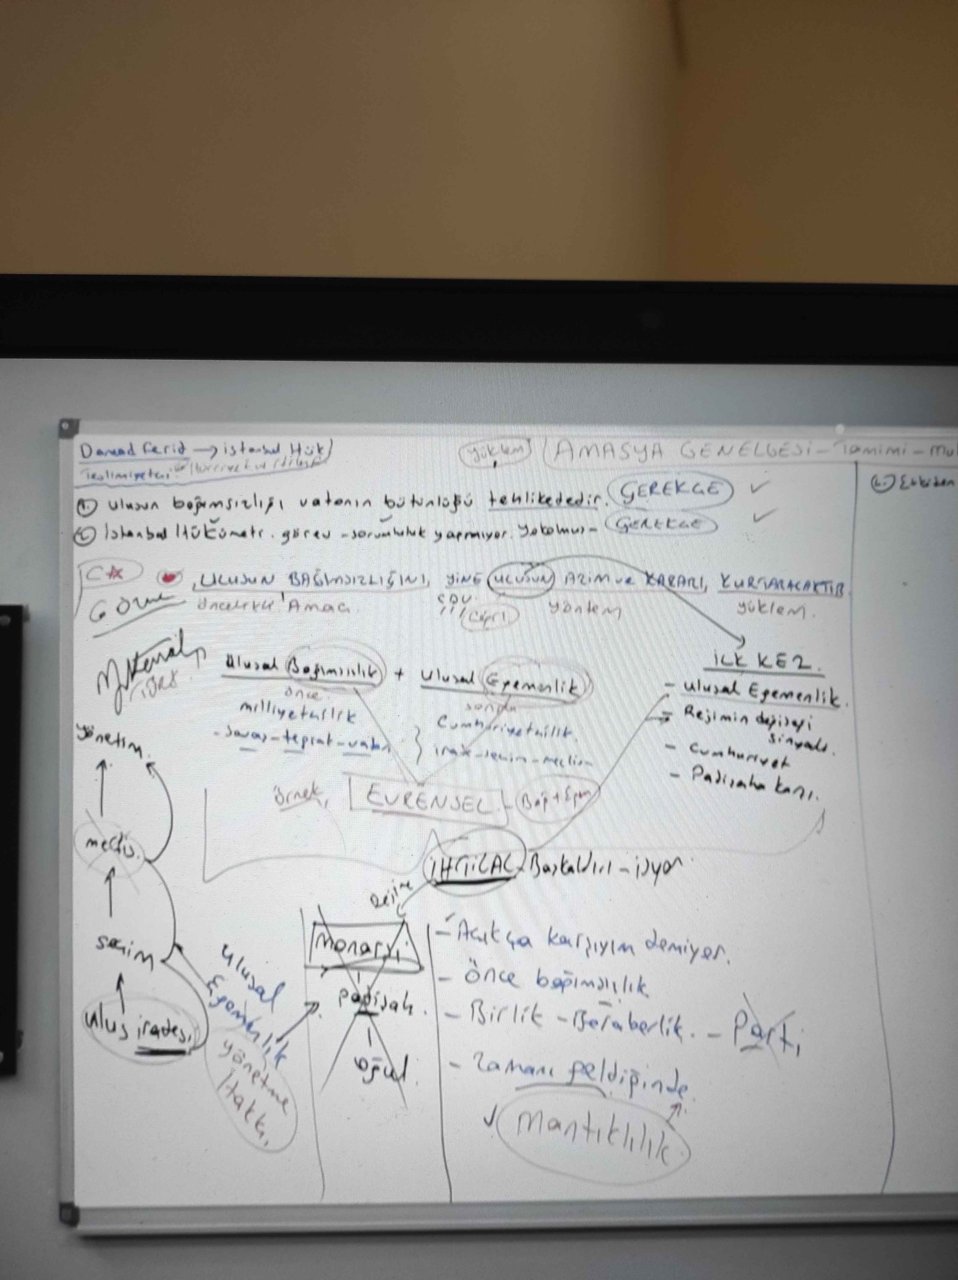 Damad Ferid → istanbul Hük
Teslimiyetçi
yüklem
AMASYA GENELGESİ - Tamimi - Mu
① Ulusun bağımsızlığı vatanın bütünlüğü tehlikededir. GEREKÇE ✓
② İstanbul Hükümeti. görev - sorumluluk yapmıyor. GEREKÇE ✓
C☆ ULUSUN BAĞIMSIZLIĞINI, YİNE ULUSUN AZİM ve KARARI, KURTARACAKTIR
öncelikle Amaç
yöntem
yüklem.
M. Kemal
Ulusal Bağımsızlık + Ulusal Egemenlik
önce
sonra
milliyetçilik
Cumhuriyetçilik.
- savaş - toprak - vatan
İLK KEZ
- Ulusal Egemenlik.
- Rejimin değişeği
sinyali.
- Cumhuriyet
- Padişaha karşı.
örnek, EVRENSEL
yönetim.
meclis.
seçim
ulus iradesi
Ulusal
Egemenlik
yönetme
Hakkı,
İHTİLAL - Başkaldırı - isyan
Rejime
Monarşi
Padişah.
oğul.
- Açıkça karşıyım demiyor.
- Önce bağımsızlık
- Birlik - Beraberlik. - Parti
- Zamanı geldiğinde.
✓ Mantıklılık